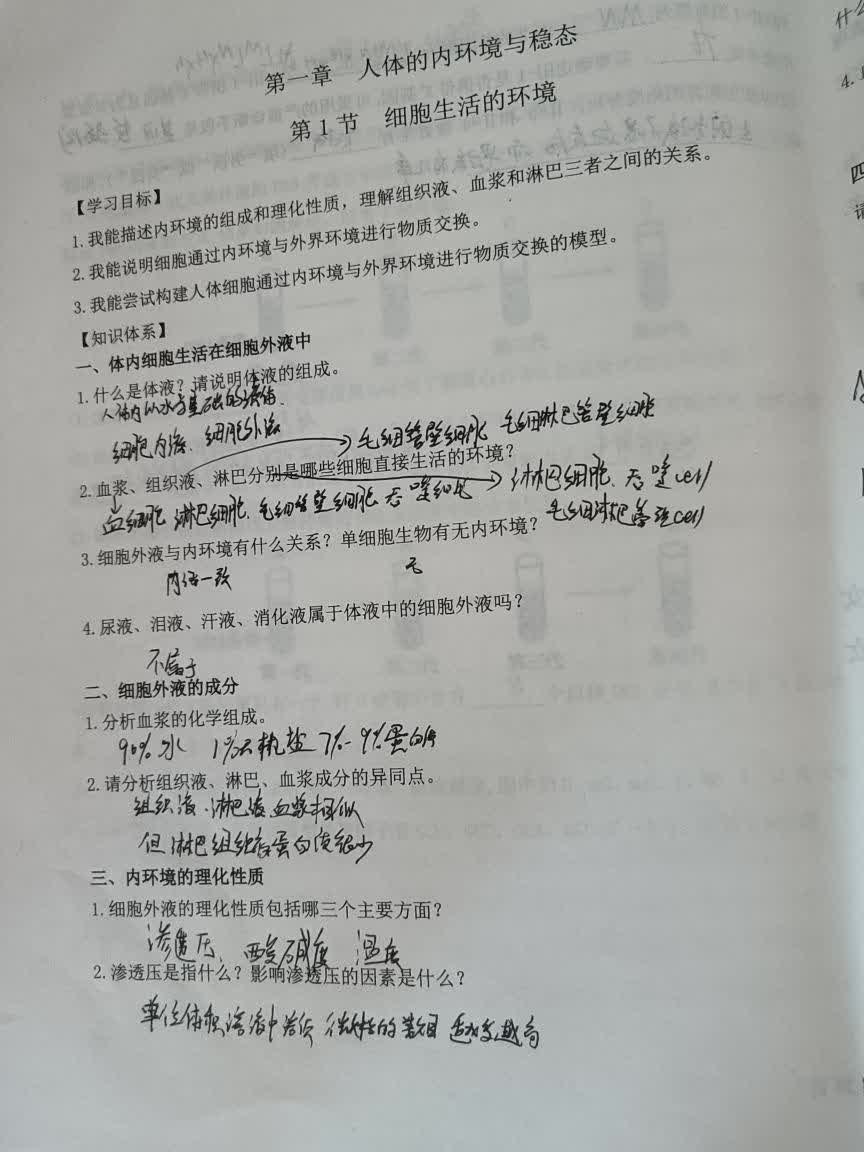 第一章 人体的内环境与稳态
第1节 细胞生活的环境
【学习目标】
1.我能描述内环境的组成和理化性质，理解组织液、血浆和淋巴三者之间的关系。
2.我能说明细胞通过内环境与外界环境进行物质交换。
3.我能尝试构建人体细胞通过内环境与外界环境进行物质交换的模型。
【知识体系】
一、体内细胞生活在细胞外液中
1.什么是体液？请说明体液的组成。
人体内以水为基础的液体.
细胞内液、细胞外液
毛细管壁细胞 毛细淋巴管壁细胞
2.血浆、组织液、淋巴分别是哪些细胞直接生活的环境？
血细胞 淋巴细胞、毛细管壁细胞 吞噬细胞
淋巴细胞、吞噬cell
毛细淋巴管壁cell
3.细胞外液与内环境有什么关系？单细胞生物有无内环境？
内涵一致 无
4.尿液、泪液、汗液、消化液属于体液中的细胞外液吗？
不属于
二、细胞外液的成分
1.分析血浆的化学组成。
90%水 1%无机盐 7%-9%蛋白质
2.请分析组织液、淋巴、血浆成分的异同点。
组织液、淋巴液、血浆相似
但淋巴组织液蛋白质很少
三、内环境的理化性质
1.细胞外液的理化性质包括哪三个主要方面？
渗透压、酸碱度 温度
2.渗透压是指什么？影响渗透压的因素是什么？
单位体积溶液中溶质 的数目 越多越高
什么
4.
四
请